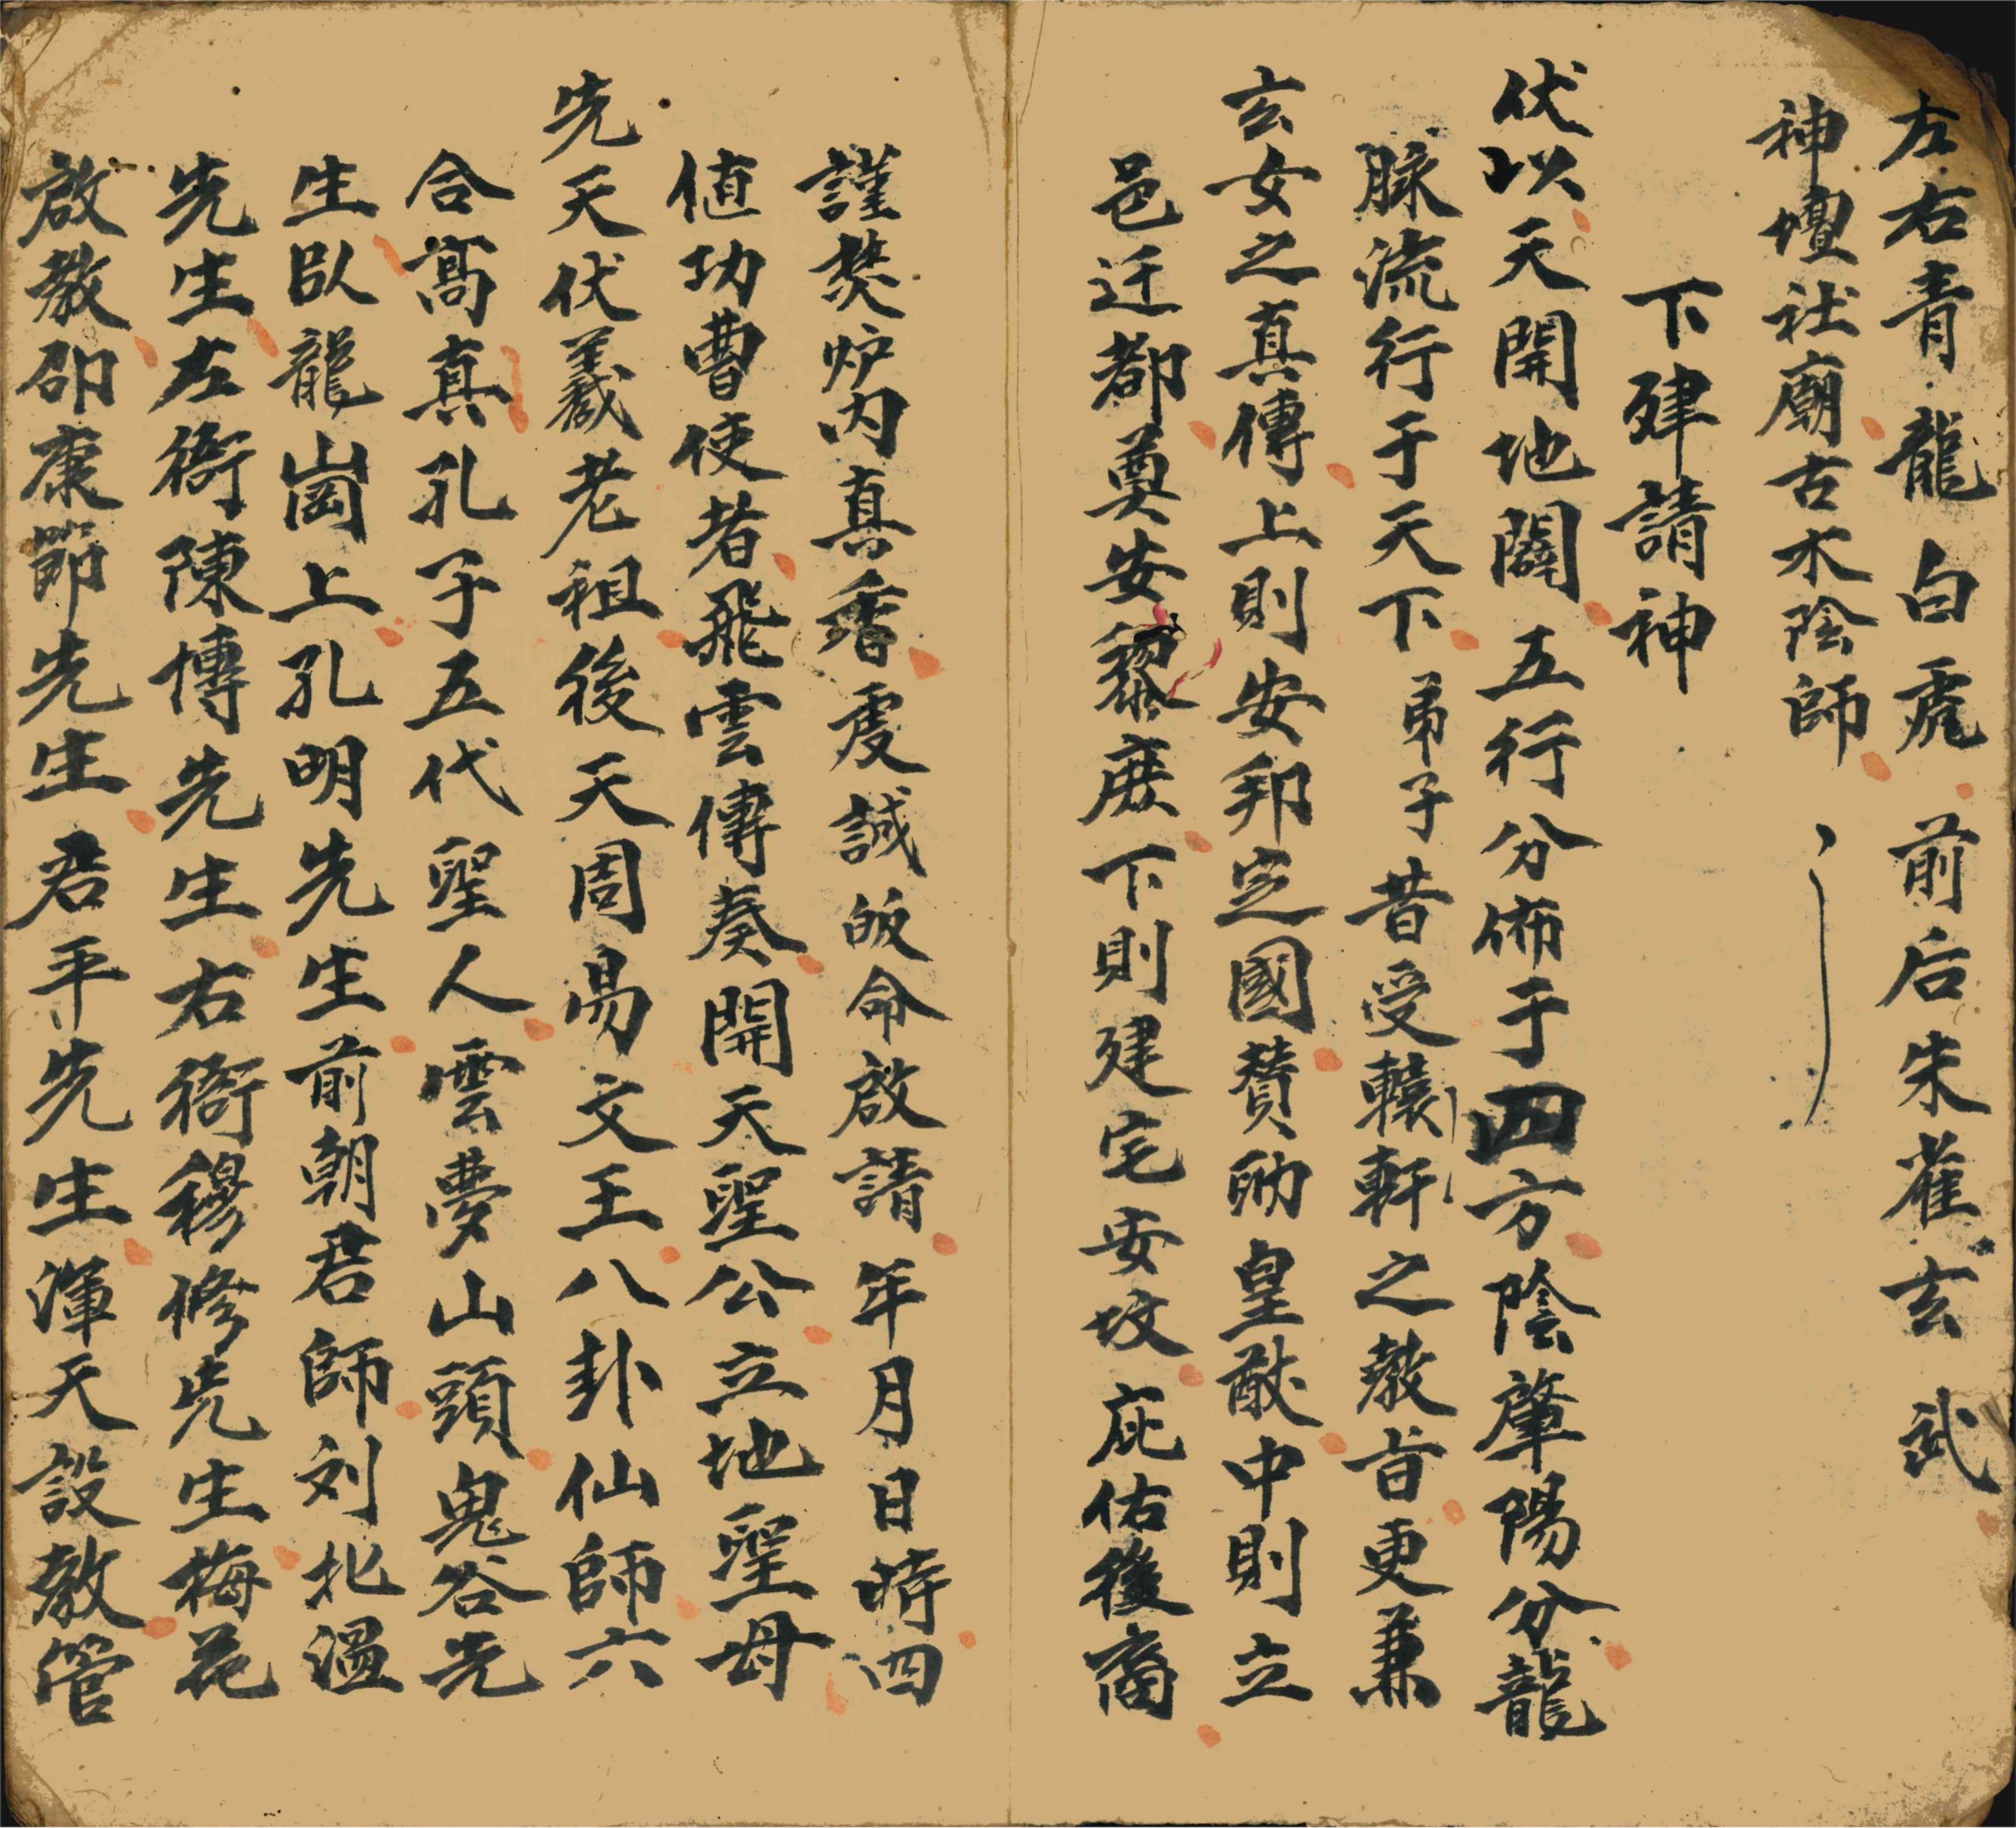 左右青龍白虎前后朱雀玄武
神壇社廟古木陰師
下建請神
伏以天開地闢五行分佈于四方陰肇陽分龍
脉流行于天下弟子昔受轅軒之教旨更兼
玄女之真傳上則安邦定國贊助皇猷中則立
邑迁都奠安黎庶下則建宅安坟庇佑後裔
謹焚炉内真香虔誠皈命啟請年月日時四
值功曹使者飛雲傳奏開天聖公立地聖母
先天伏羲老祖後天周易文王八卦仙師六
合高真孔子五代聖人雲夢山頭鬼谷先
生臥龍崗上孔明先生前朝君師刘北温
先生左衙陳愽先生右衙穆修先生梅花
啟教邵康節先生君平先生渾天設教管